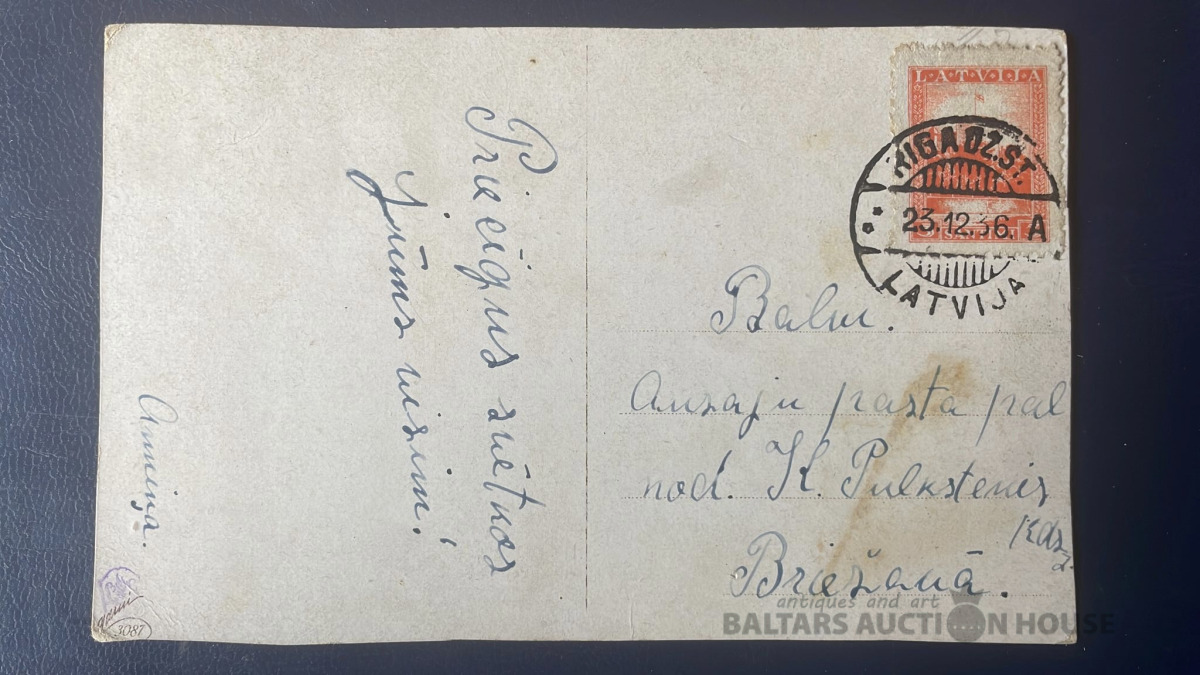 Priecīgus svētkos
Jums visim!
Anniņa.
3087
LATVIJA
RIGA DZ. ST.
23.12.36. A
LATVIJA
Balvu.
pasta pal
nod. K. Pulkstenis
Briežavā.
antiques and art
BALTARS AUCTION HOUSE